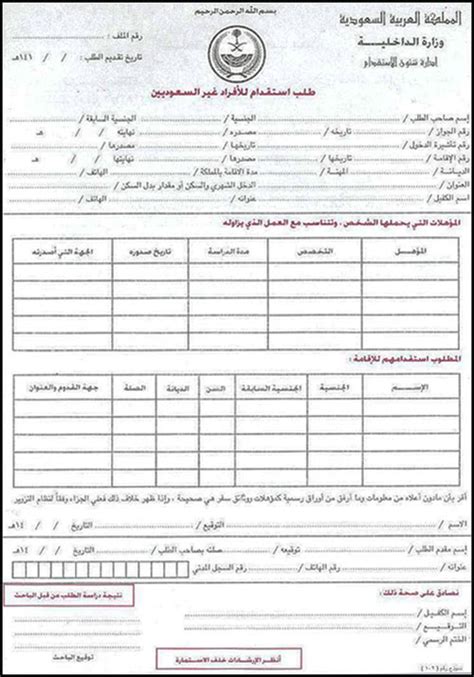 بسم الله الرحمن الرحيم
المملكة العربية السعودية
وزارة الداخلية
إدارة شئون الاستقدام
رقم الملف :
تاريخ تقديم الطلب : / / ١٤١هـ
طلب استقدام للأفراد غير السعوديين
إسم صاحب الطلب / الجنسية / الجنسية السابقة /
رقم الجواز / تاريخه / مصدره / نهايته / / هـ
رقم تأشيرة الدخول / تاريخها / مصدرها /
رقم الإقامة / تاريخها / مصدرها / نهايتها / / هـ
الديانة / المهنة / مدة الاقامة بالمملكة / الهاتف /
العنوان / الدخل الشهري والسكن أو مقدار بدل السكن /
اسم الكفيل / عنوانه / الهاتف /
المؤهلات التي يحملها الشخص ، وتتناسب مع العمل الذي يزاوله
المؤهل التخصص مدة الدراسة تاريخ صدوره الجهة التي أصدرته
المطلوب استقدامهم للإقامة :
الإسم الجنسية الجنسية السابقة السن الديانة الصلة جهة القدوم والعنوان
أقر بأن مادون أعلاه من معلومات وما أرفق من أوراق رسمية كمؤهلات ووثائق سفر هي صحيحة ، وإذا ظهر خلاف ذلك فعلي الجزاء وفقاً لنظام التزوير
الاسم / التوقيع / التاريخ / / ١٤هـ
إسم مقدم الطلب / توقيعه / صلته بصاحب الطلب / التاريخ / / ١٤هـ
عنوانه / رقم الهاتف / رقم السجل المدني
نصادق على صحة ذلك :
إسم الكفيل /
التوقيع /
الختم الرسمي /
نتيجة دراسة الطلب من قبل الباحث
توقيع الباحث
أنظر الإرشادات خلف الاستمارة
نموذج رقم (١٠٢)